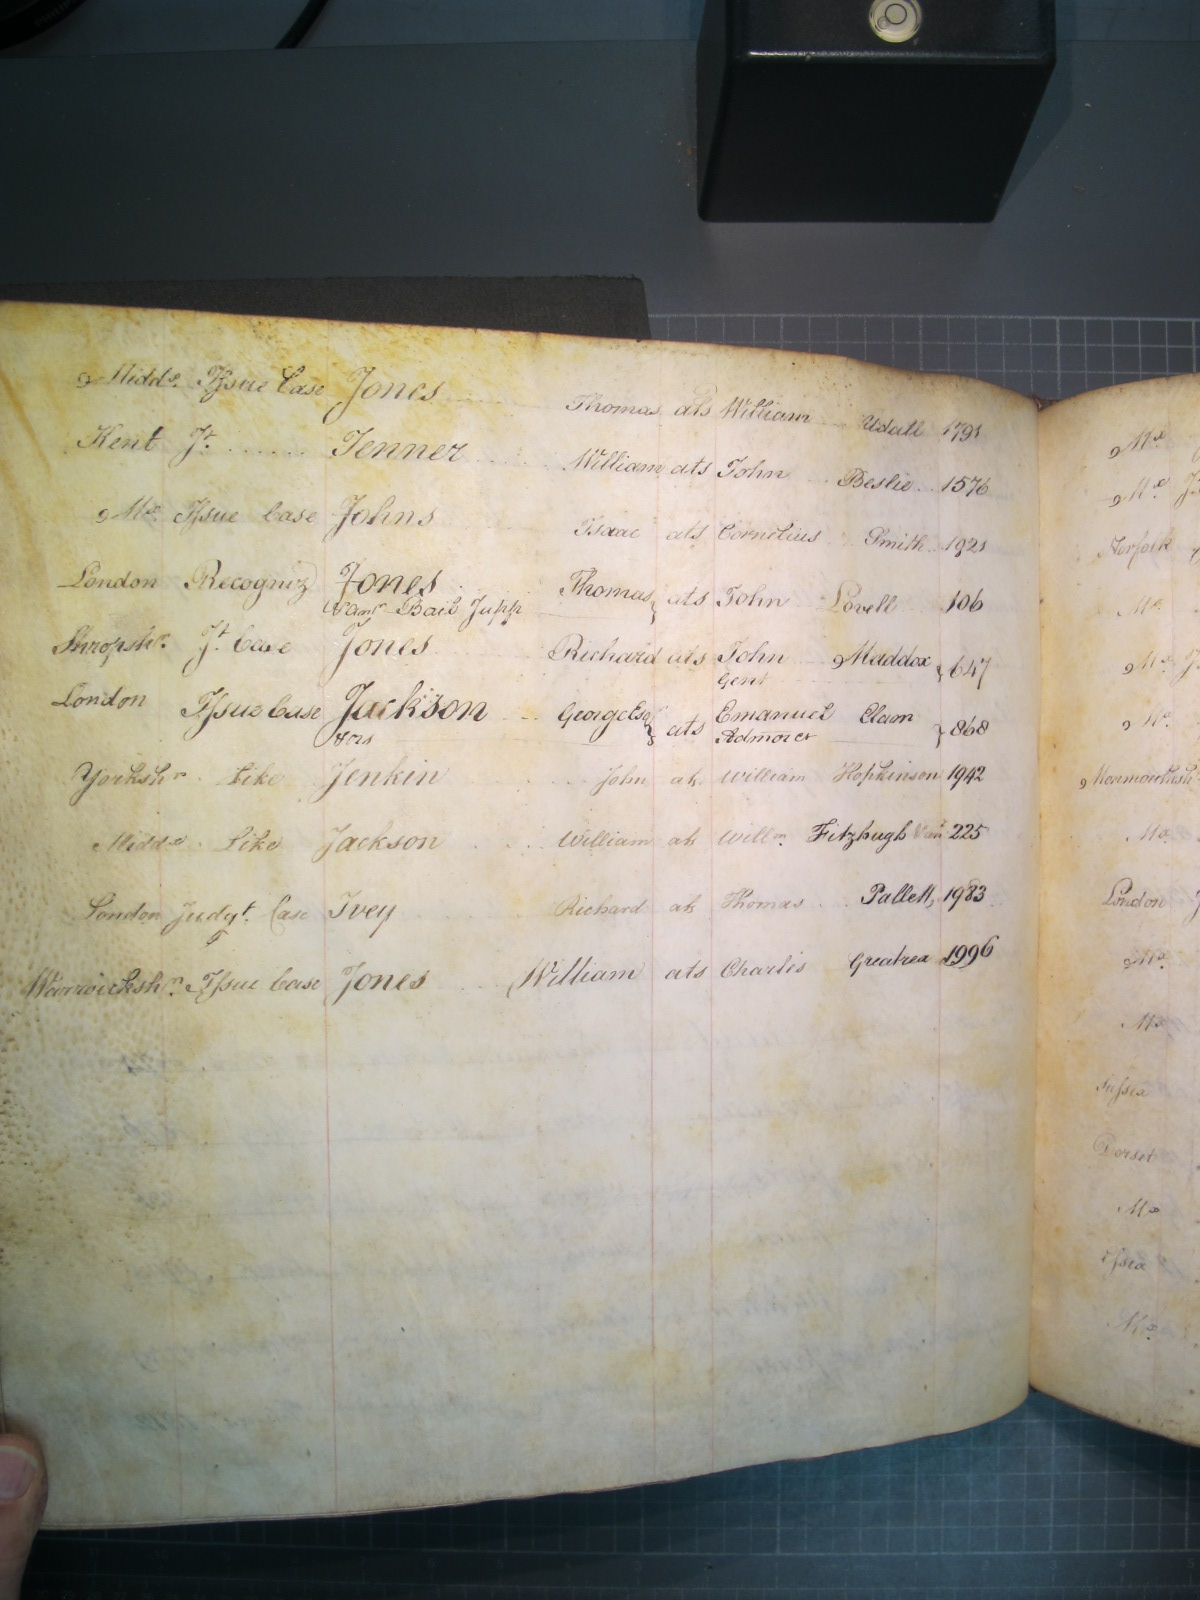 Midds. Issue Case Jones Thomas ats William Udall 1791
Kent Jt. Jenner William ats John Beslie 1576
Mx. Issue Case Johns Isaac ats Cornelius Smith 1921
London Recogniz Jones Thomas ats John Lovell 106
Bail Jupp
Shropshr. Jt. Case Jones Richard ats John Maddox 647
Gent
London Issue Case Jackson George Esqr ats Emanuel Elam 868
Admor &c
Yorkshr. Like Jenkin John at William Hopkinson 1942
Middx. Like Jackson William at Willm. Fitzhugh 225
London Judgt. Case Ivey Richard at Thomas Pallett, 1983
Warwickshr. Issue Case Jones William ats Charles Greatrex 1996
Mx
Mx.
Norfolk
Mx.
Mx.
Mx.
Monmouthsh
Mx.
London
Mx.
Mx
Sussex
Dorset
Mx
Essex
Mx.